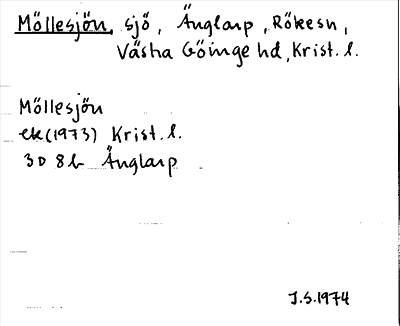 Möllesjön, sjö, Änglarp, Rökesn,
Västra Göinge hd, Krist. l.
Möllesjön
ek (1973) Krist. l.
3D 8b Änglarp
J.S. 1974